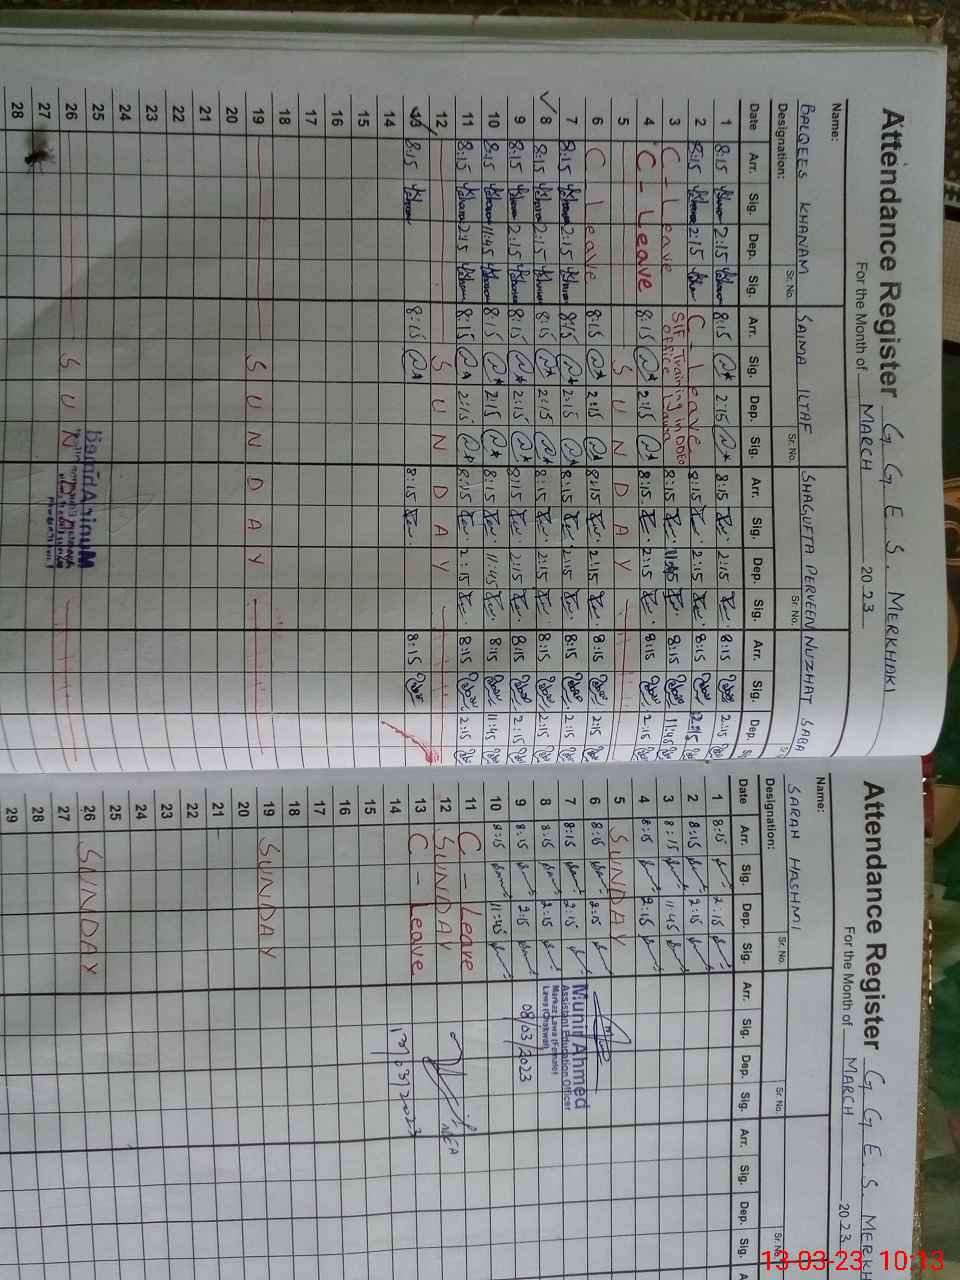 Attendance Register G. G. E. S. MERKHAKI
For the Month of MARCH 2023
Name: BALQEES KHANAM SAIMA ILTAF SHAGUFTA PERVEEN NUZHAT SABA
Designation: Sr. No. Sr. No. Sr. No.
Date Arr. Sig. Dep. Sig. Arr. Sig. Dep. Sig. Arr. Sig. Dep. Sig. Arr. Sig. Dep.
1 8:15 2:15 8:15 2:15 8:15 2:15 8:15 2:15
2 8:15 2:15 C - Leave 8:15 2:15 8:15 2:15
3 C - Leave SIF Training in DDEO office Lawa 8:15 11:45 8:15 11:45
4 C - Leave 8:15 2:15 8:15 2:15 8:15 2:15
5 SUNDAY
6 C Leave 8:15 2:15 8:15 2:15 8:15 2:15
7 8:15 2:15 8:15 2:15 8:15 2:15 8:15 2:15
8 8:15 2:15 8:15 2:15 8:15 2:15 8:15 2:15
9 8:15 2:15 8:15 2:15 8:15 2:15 8:15 2:15
10 8:15 11:45 8:15 2:15 8:15 11:45 8:15 11:45
11 8:15 2:15 8:15 2:15 8:15 2:15 8:15 2:15
12 SUNDAY
13 8:15 8:15 8:15 8:15
14
15
16
17
18
19 SUNDAY
20
21
22
23
24
25
26 SUN
27
28
Attendance Register G. G. E. S. MERKH
For the Month of MARCH 2023
Name: SARAH HASHMI
Designation: Sr. No. Sr. No. Sr. No.
Date Arr. Sig. Dep. Sig. Arr. Sig. Dep. Sig. Arr. Sig. Dep. Sig. A
1 8:15 2:15
2 8:15 2:15
3 8:15 11:45
4 8:15 2:15
5 SUNDAY
6 8:15 2:15
7 8:15 2:15
8 8:15 2:15
9 8:15 2:15
10 8:15 11:45
11 C - Leave
12 SUNDAY
13 C - Leave
14
15
16
17
18
19 SUNDAY
20
21
22
23
24
25
26 SUNDAY
27
28
29
Munir Ahmed
Assistant Education Officer
Markaz Lawa (Female)
Lawa (Chakwal)
08/03/2023
MEA
13/03/2023
13-03-23 10:13